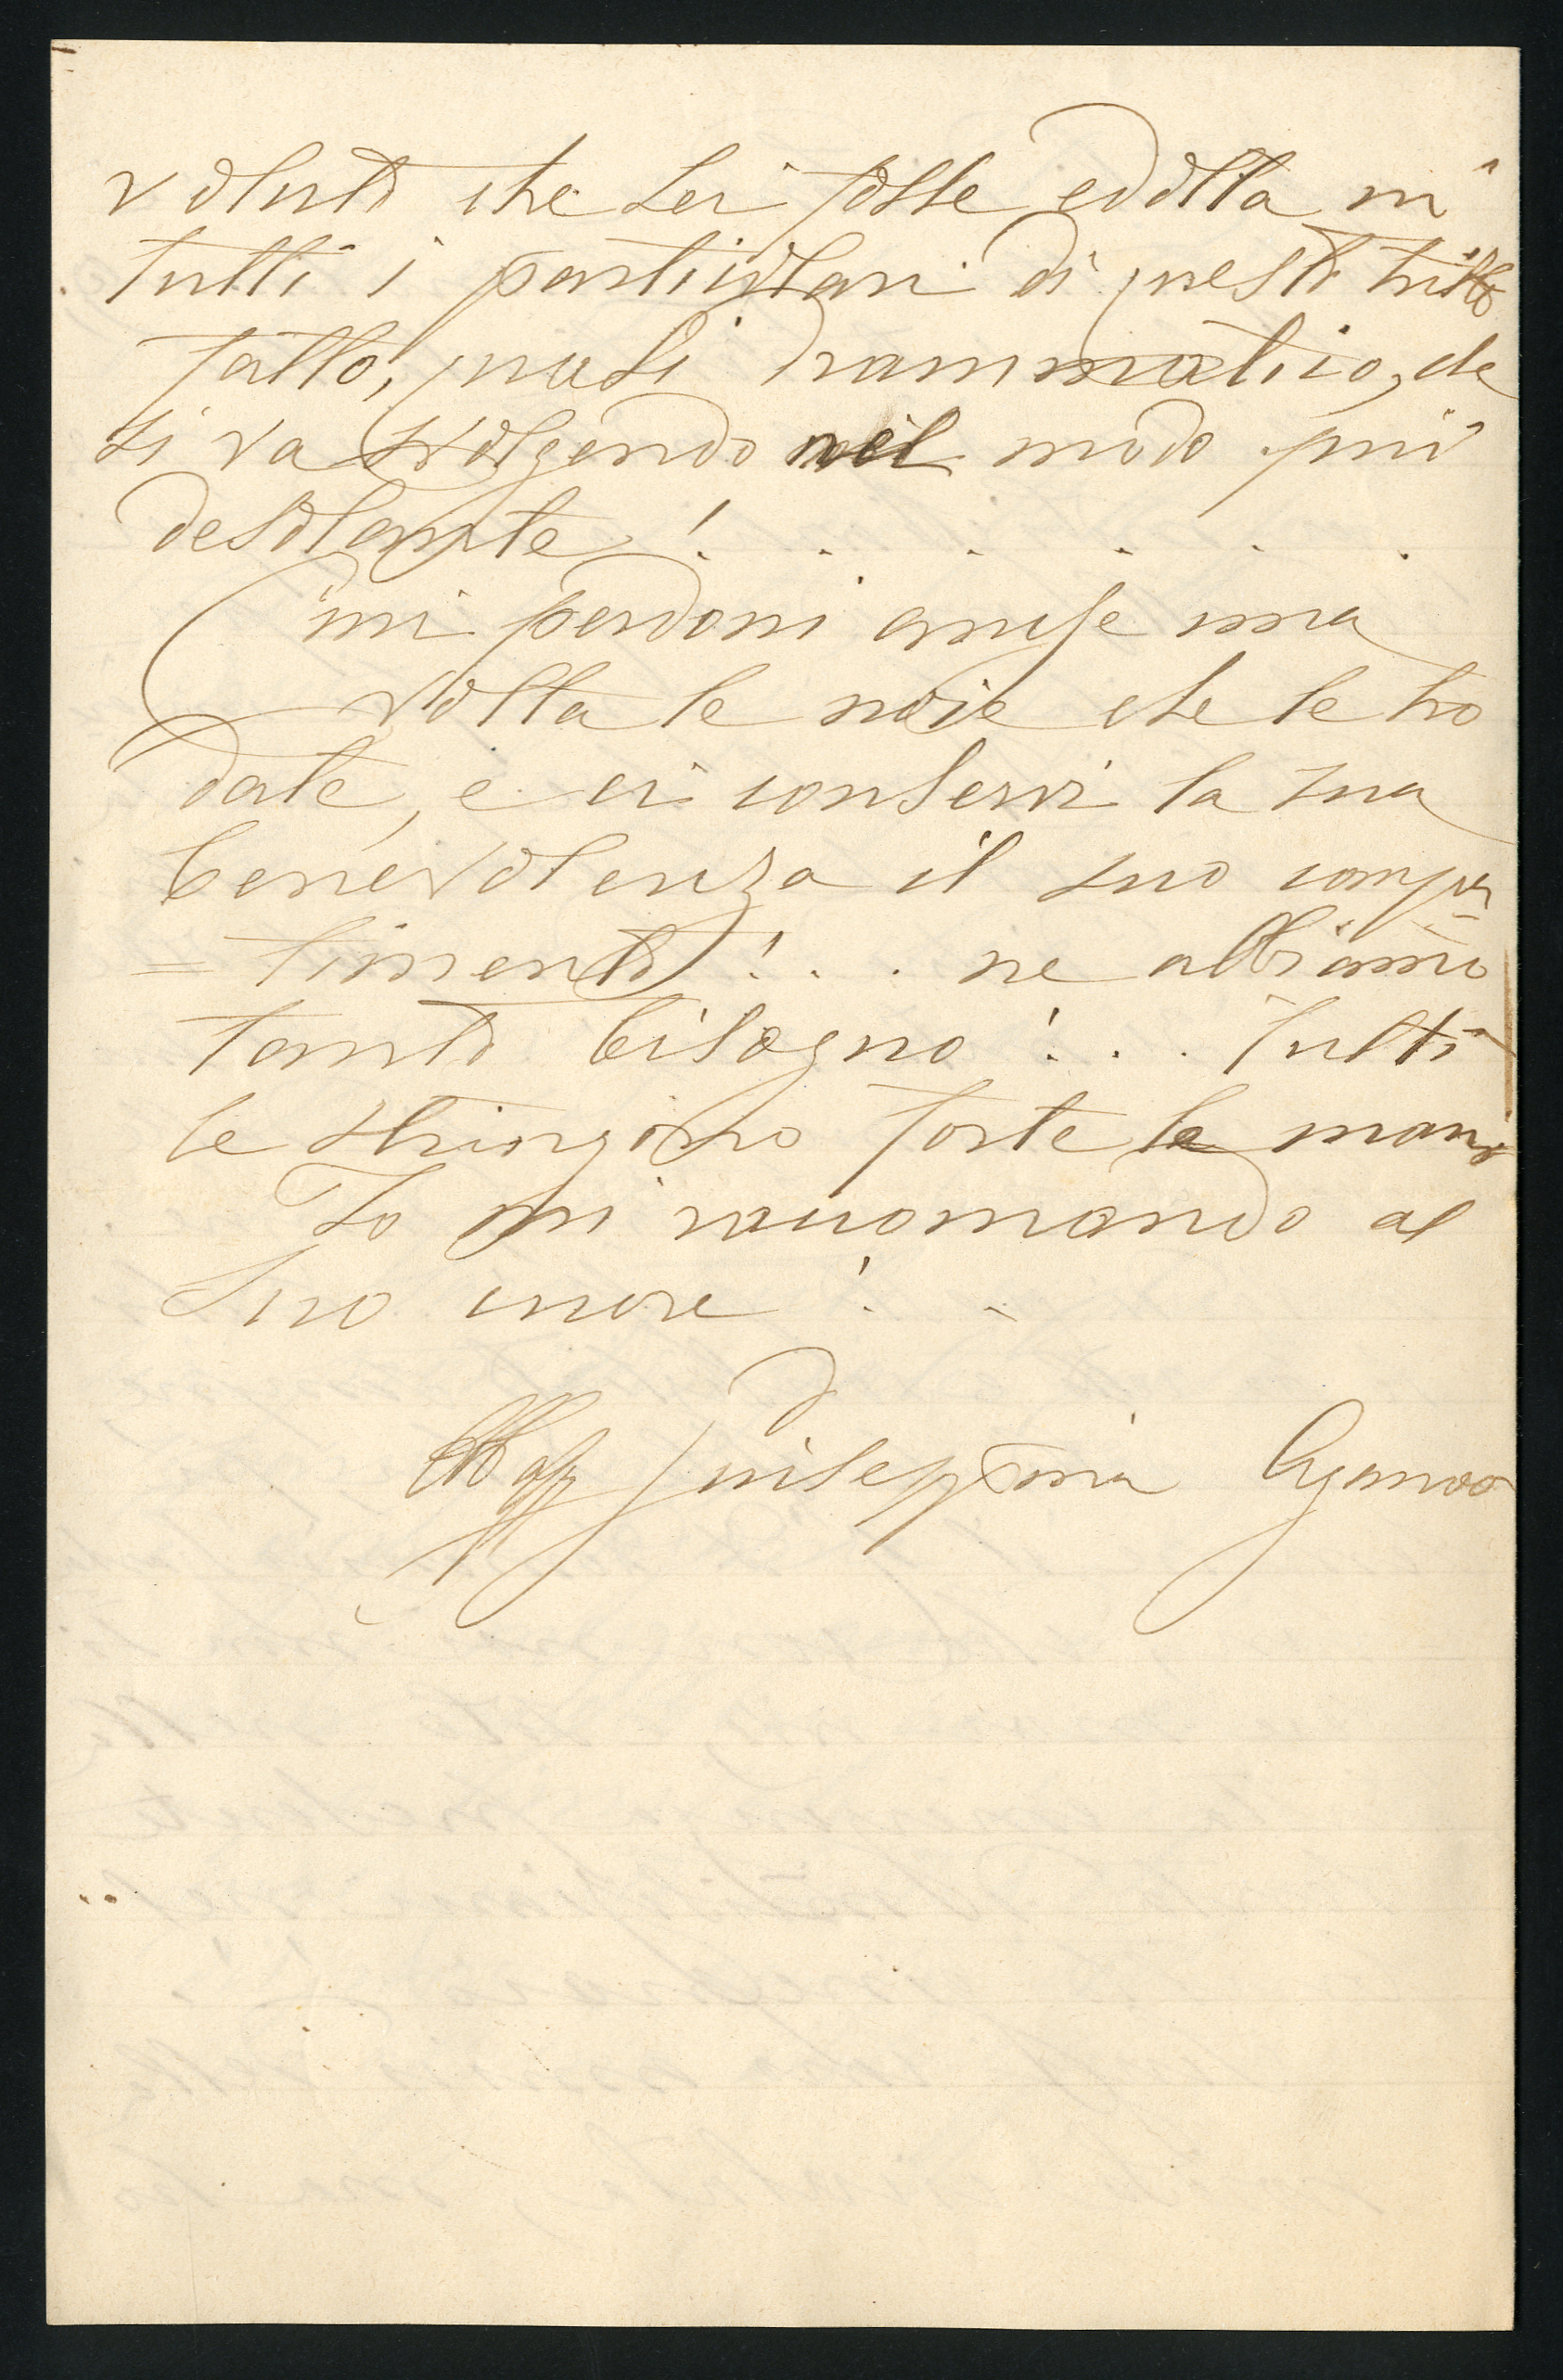 voluto che Lei fosse eddotta in
tutti i particolari di questo triste
fatto, quasi drammatico, che
si va svolgendo nel modo più
desolante! . . . . .
Mi perdoni anche una
volta le noie che le ho
date, e ci conservi la sua
benevolenza il suo compa
= timento! . . ne abbiamo
tanto bisogno! . . Tutti
le stringono forte la mano
Io mi raccomando al
Suo cuore! .
Giuseppina